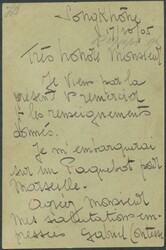 Songkhöne
17/10/05
Très honoré Monsieur,
Je viens par la
present v remercier
p. les renseignements
donnés.
Je m'embarquerai
sur un Paquebot pour
Marseille.
Agreer Monsieur
mes salutations em-
pressées Gabriel